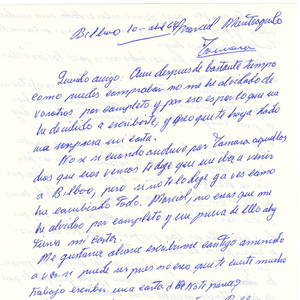 Bilbao 10-abril 64 Marcial Mantrógulo
Zamara
Querido amigo: Aun despues de bastante tiempo
como puedes comprobar no me he olvidado de
vosotros por completo y por eso espero que no
he decidido a escribirte, y creo que te haya dado
una sorpresa mi carta.
No se si cuando anduve por Zamara aquellos
dias que eras vernos te dije que un dia a venir
a Bilbao, pero si no te lo dije ya ves como
ha cambiado todo. Marcial, no creas que me
he olvido por completo y un prueva de ello ahy
tienes mi carta.
Me gustaria ahora escribirme contigo amenudo
a ver si puede ser pues no creo que te cueste mucho
trabajo escribir una carta ¿No te parece?